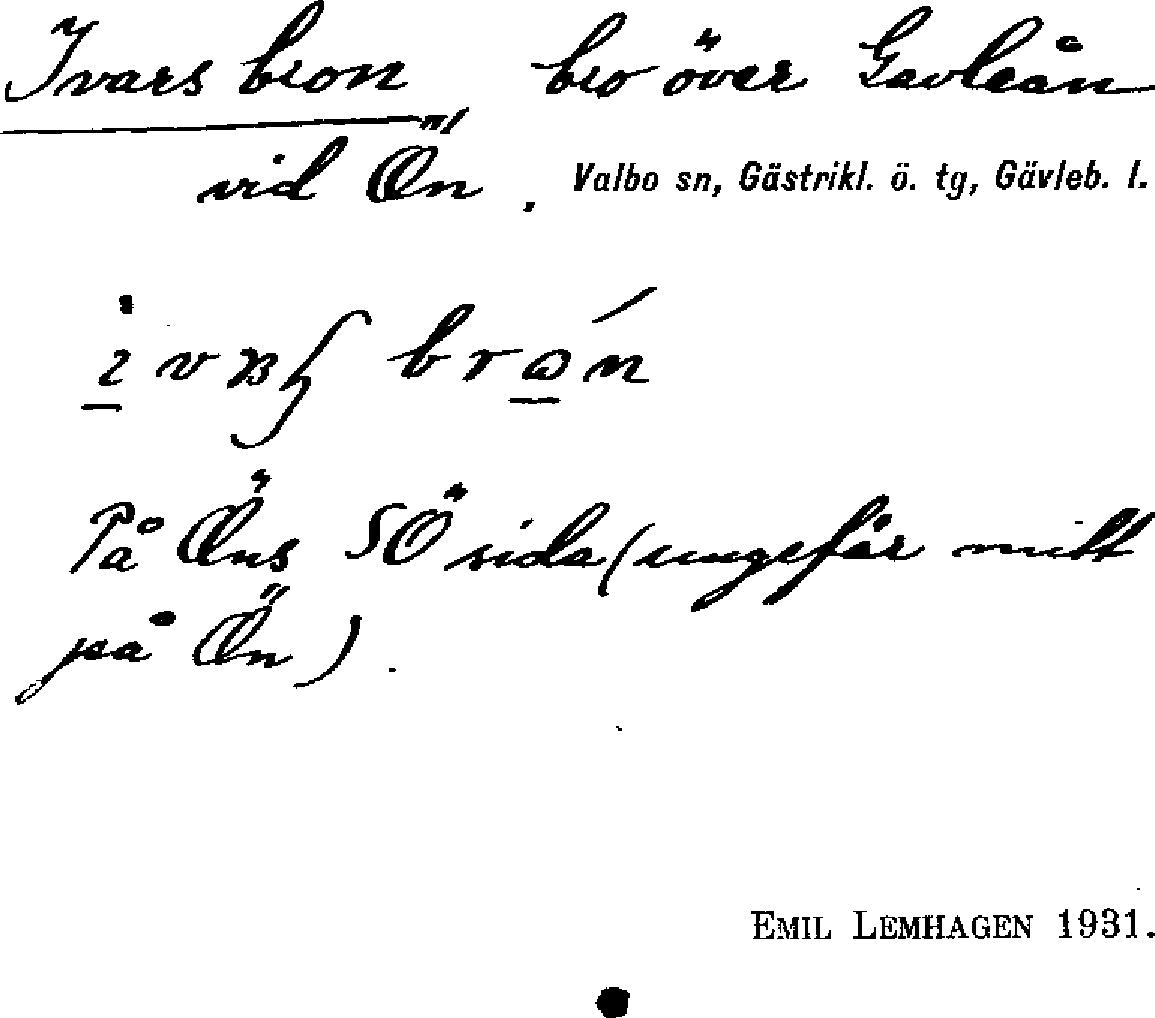 Ivars bron bro över Gavleån
vid Ön. Valbo sn, Gästrikl. ö. tg, Gävleb. l.
På Öns SÖ sida (ungefär mitt
på Ön).
EMIL LEMHAGEN 1931.